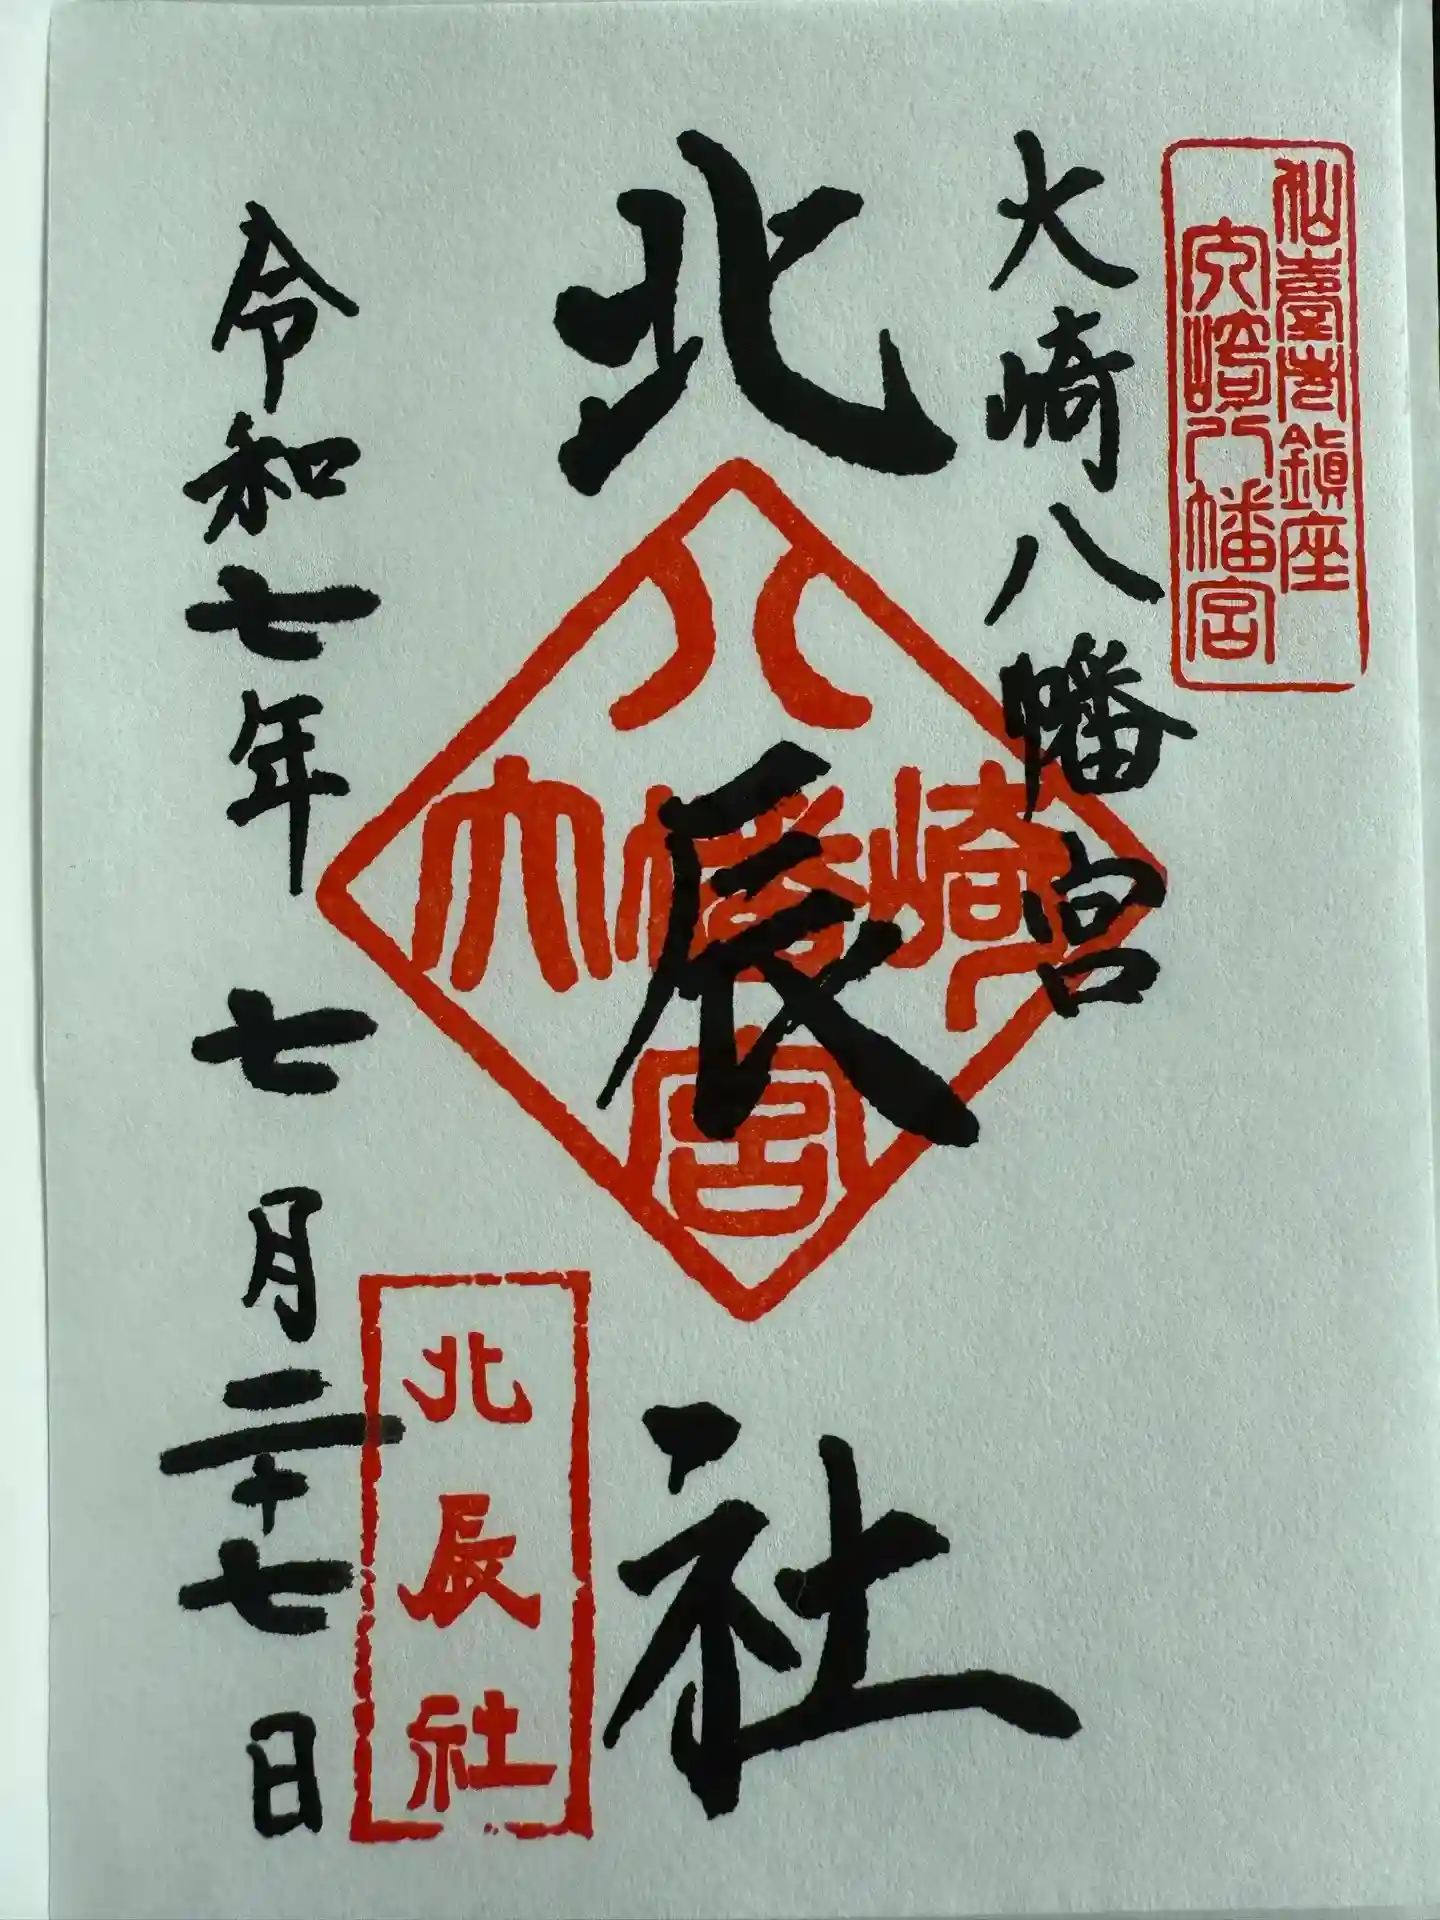 仙臺市鎮座
大崎八幡宮
大崎八幡宮
北辰社
八
大幡崎
宮
北辰社
令和七年七月二十七日